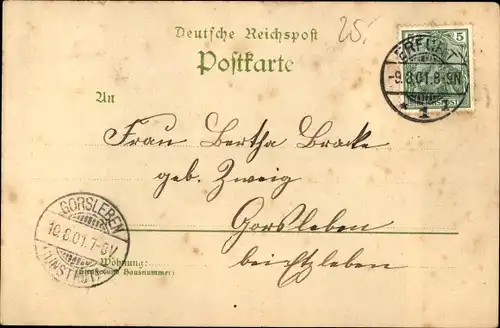 25.
Deutsche Reichspost
Postkarte
5
ERFURT
-9.8.01.8-9N
* 1 1
An
Frau Bertha Bracke
geb. Zweig
Gorsleben
GORSLEBEN
10.8.01.7-8V
(UNSTRUT)
Wohnung:
(Straße und Hausnummer)